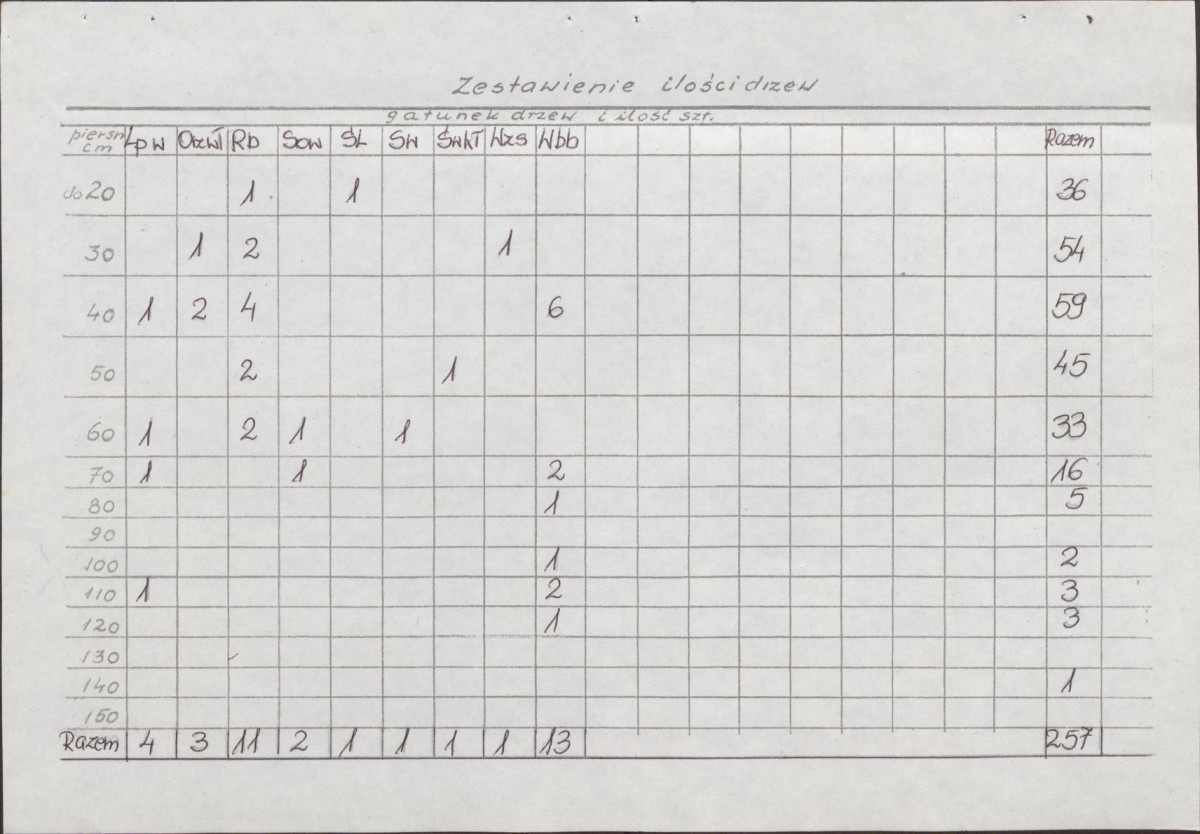 Zestawienie ilości drzew
gatunek drzew i ilość szt.
pierśn. cm Lpw Orzwł Rb Sow ŚL Św Świkł Wzs Wbb Razem
do 20 1 1 36
30 1 2 1 54
40 1 2 4 6 59
50 2 1 45
60 1 2 1 1 33
70 1 1 2 16
80 1 5
90
100 1 2
110 1 2 3
120 1 3
130
140 1
150
Razem 4 3 11 2 1 1 1 1 13 257